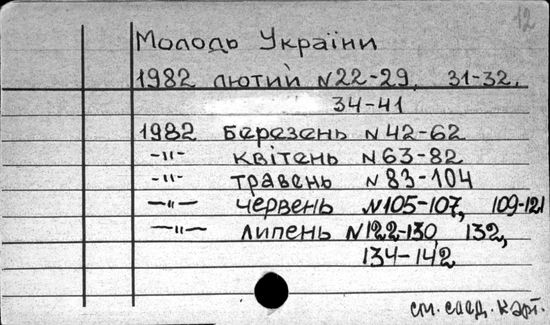 12
Молодь України
1982 лютий N22-29, 31-32,
34-41
1982 березень N42-62
-"- квітень N63-82
-"- травень N83-104
-"- червень N105-107, 109-121
-"- липень N122-130, 132,
134-142
см. след. карт.